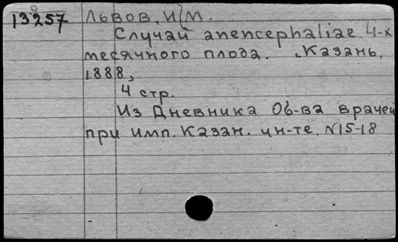 13257 Львов, И. М.
Случай anencephaliae 4-х
месячного плода. Казань,
1888,
4 стр.
Из Дневника Об-ва врачей
при Имп. Казан. ун-те. N15-18